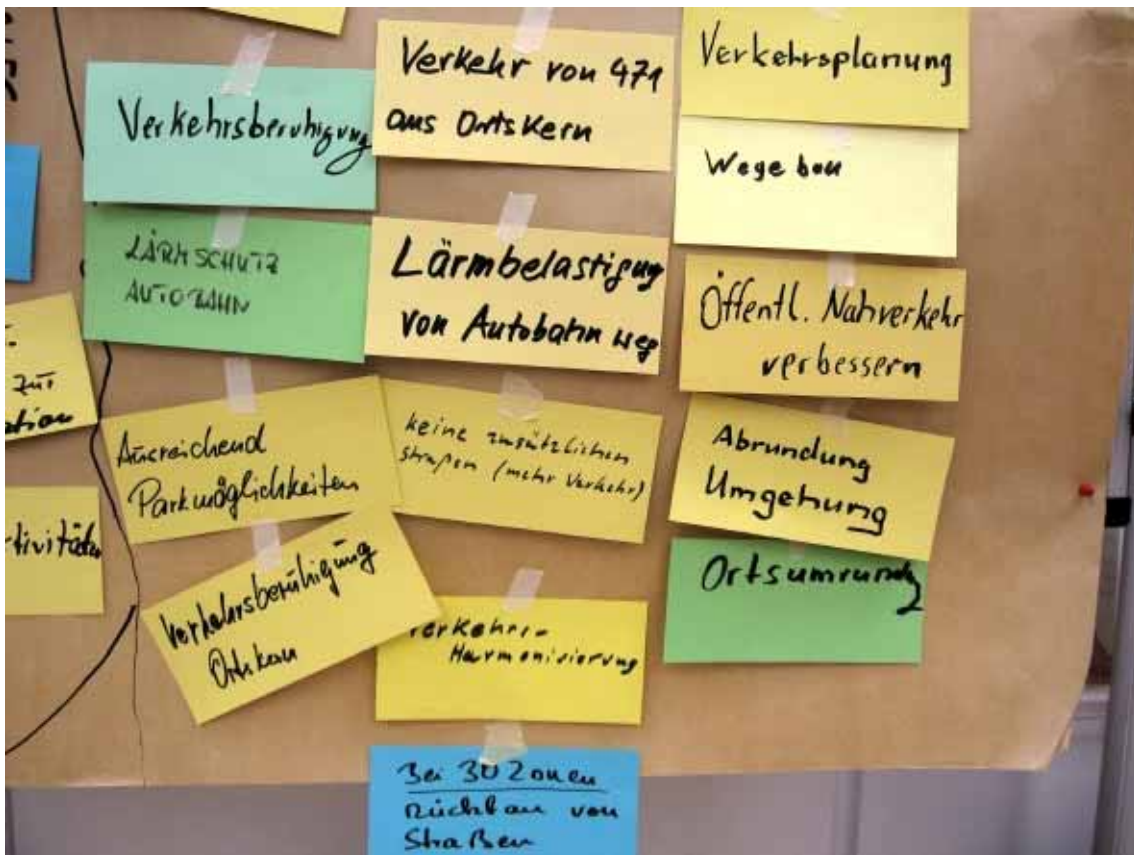 Verkehrsberuhigung
LÄRMSCHUTZ
AUTOBAHN
Ausreichend
Parkmöglichkeiten
Verkehrsberühigung
Ortskern
Verkehr von 471
aus Ortskern
Lärmbelästigung
von Autobahn weg
keine zusätzlichen
straßen (mehr Verkehr)
Verkehrs-
Harmonisierung
Bei 30 Zonen
Rückbau von
Straßen
Verkehrsplanung
Wegebau
Öffentl. Nahverkehr
verbessern
Abrundung
Umgehung
Ortsumrundg
zur
ation
tivitäten